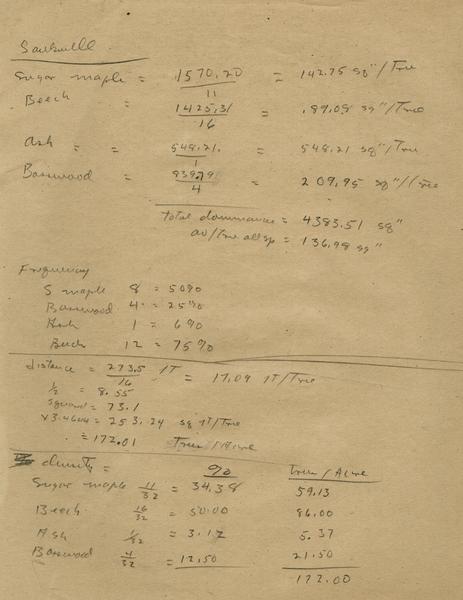 Saukville
Sugar maple = 1570.20 / 11 = 142.75 sq"/Tree
Beech = 1425.31 / 16 = 89.08 sq"/Tree
Ash = = 548.21 / 1 = 548.21 sq"/Tree
Basswood = 839.79 / 4 = 209.95 sq"/Tree
Total dominance = 4383.51 sq"
av/tree all sp = 136.98 sq"
Frequency
S maple 8 = 50%
Basswood 4 = 25%
Ash 1 = 6%
Beech 12 = 75%
distance = 273.5 / 16 = 17.09 ft/Tree
1/2 = 8.55
squared = 73.1
x3.4644 = 253.24 sq ft/Tree
= 172.01 Trees/Acre
density = % Trees/Acre
Sugar maple 11/32 = 34.38 59.13
Beech 16/32 = 50.00 86.00
Ash 1/32 = 3.12 5.37
Basswood 4/32 = 12.50 21.50
172.00